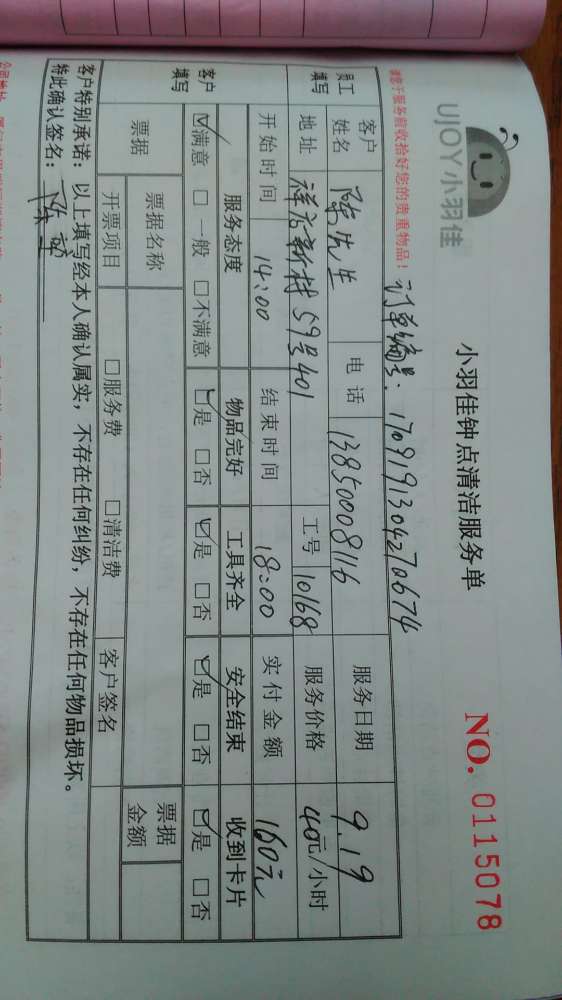 UJOY小羽佳
小羽佳钟点清洁服务单
NO. 0115078
请您于服务前收拾好您的贵重物品！
订单编号：1709191304270674
员工填写
客户姓名 陈先生 电话 13850008116 服务日期 9.19
地址 祥店新村59号401 工号 10168 服务价格 40元/小时
开始时间 14:00 结束时间 18:00 实付金额 160元
客户填写
服务态度 物品完好 工具齐全 安全结束 收到卡片
☑满意 □一般 □不满意 ☑是 □否 ☑是 □否 ☑是 □否 ☑是 □否
票据 票据名称 票据金额
开票项目 □服务费 □清洁费 客户签名
客户特别承诺：以上填写经本人确认属实，不存在任何纠纷，不存在任何物品损坏。
特此确认签名：陈